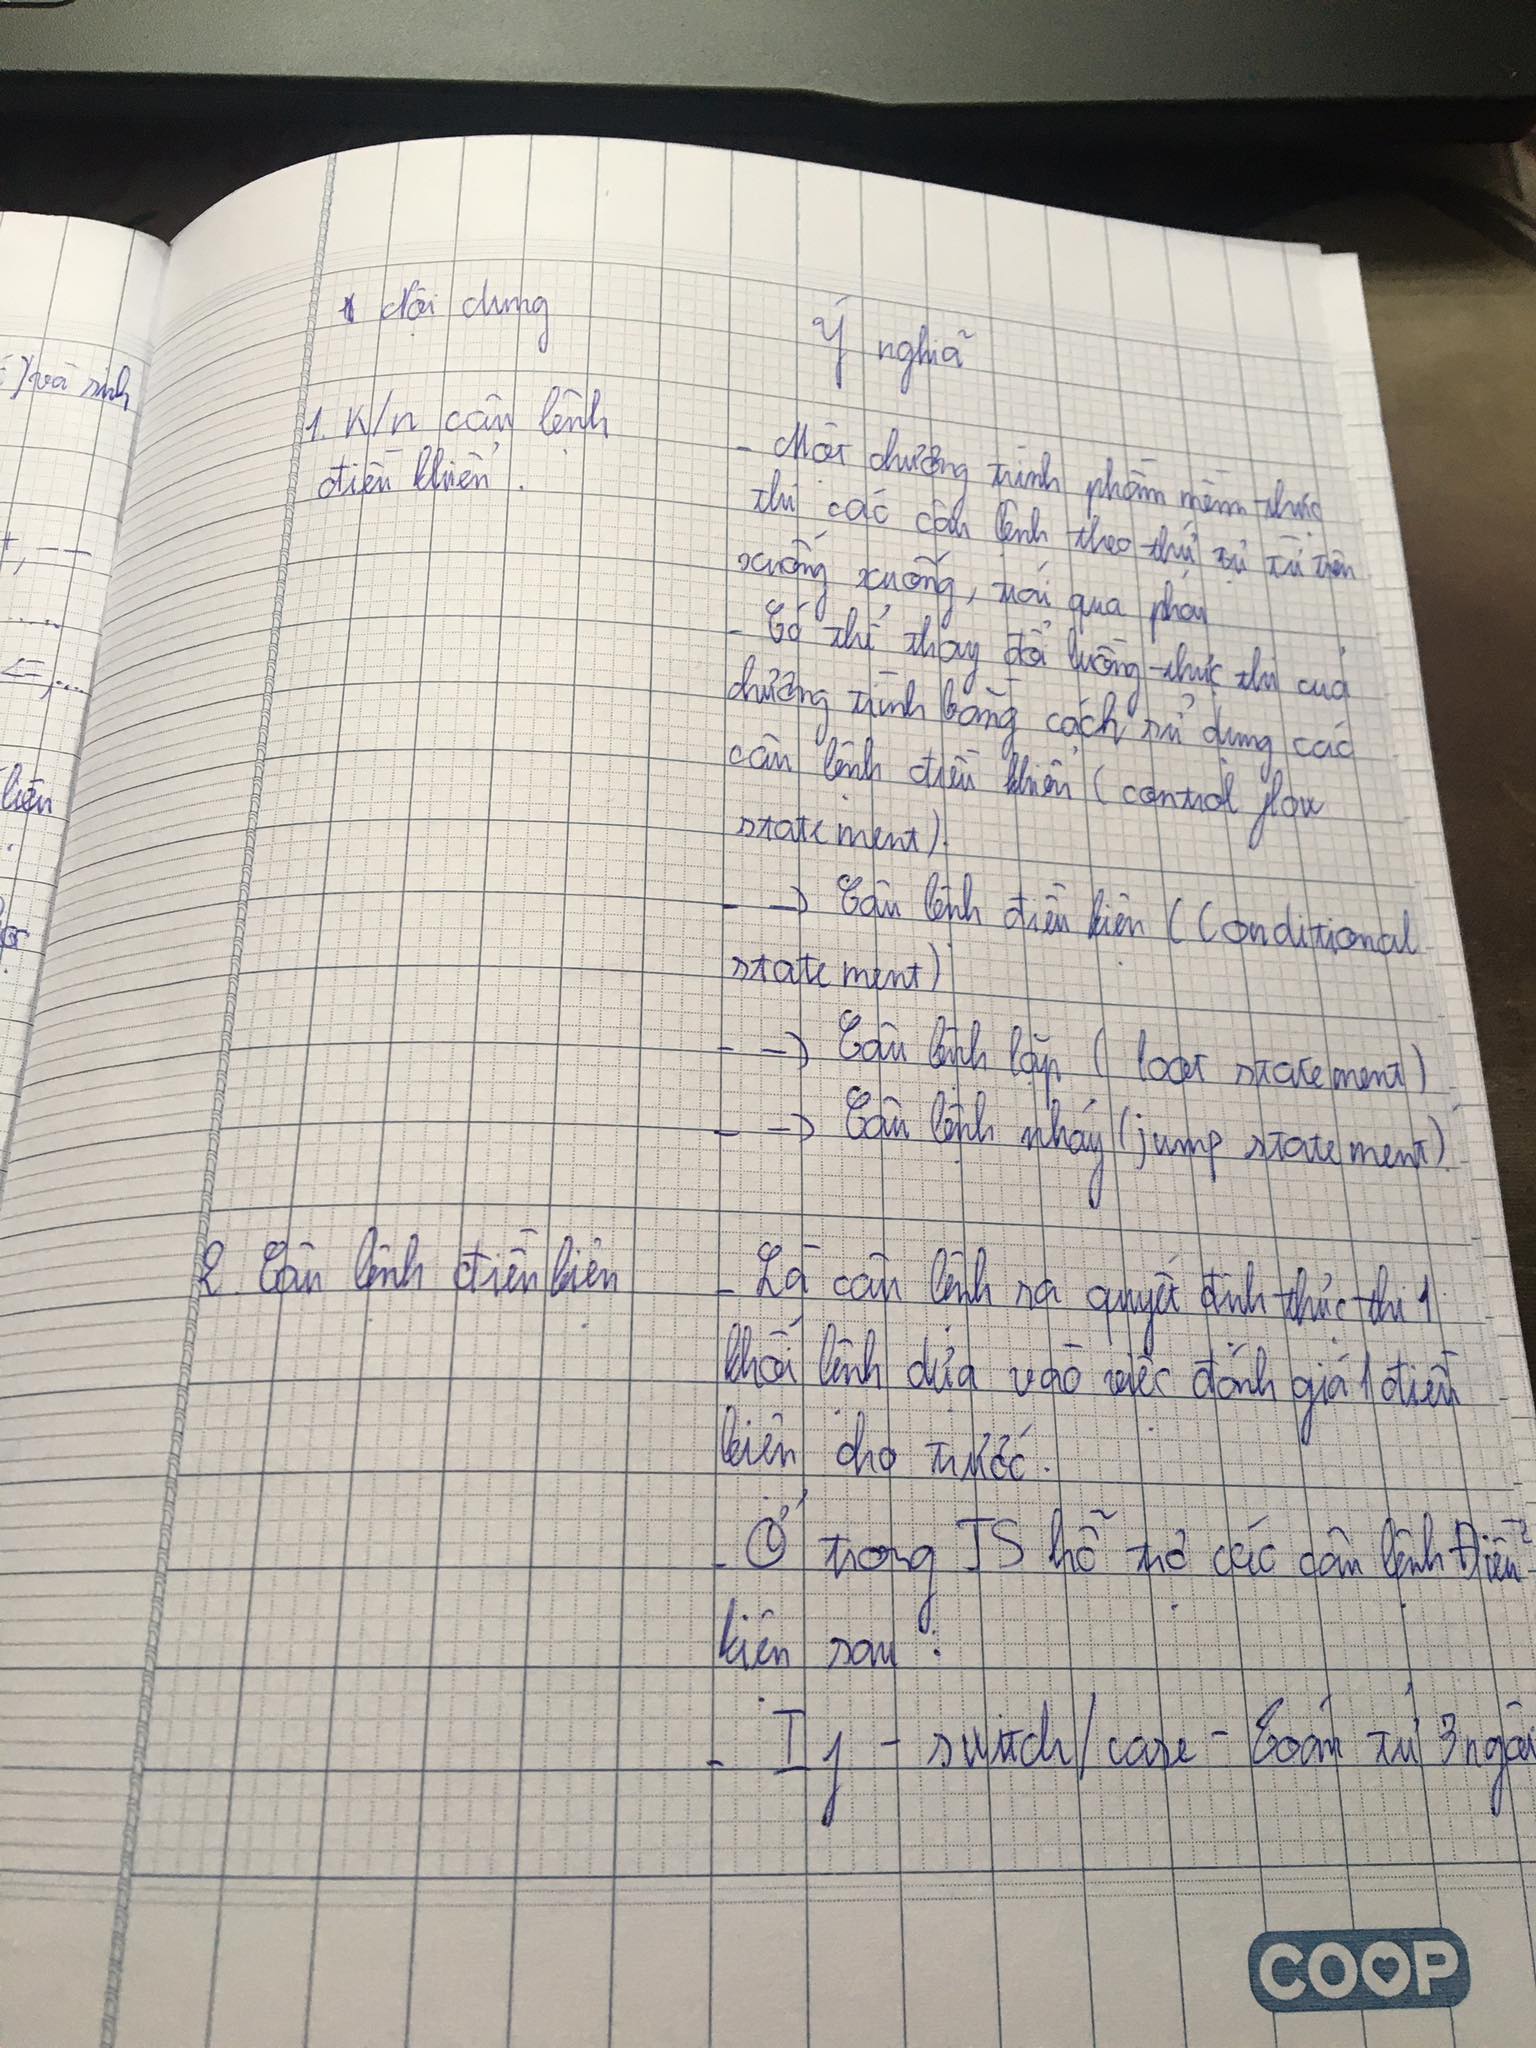 ) và sinh
+, --
....
<=,...
liện
Nội dung
Ý nghĩa
1. K/n câu lệnh
điều khiển.
- Một chương trình phần mềm thực
thi các câu lệnh theo thứ tự từ trên
xuống xuống, trái qua phải
- Có thể thay đổi luồng thực thi của
chương trình bằng cách sử dụng các
câu lệnh điều khiển (control flow
statement).
- → Câu lệnh điều kiện (Conditional
statement)
- → Câu lệnh lặp ( loot statement)
- → Câu lệnh nhảy (jump statement)
2. Câu lệnh điều kiện
- Là câu lệnh ra quyết định thực thi 1
khối lệnh dựa vào việc đánh giá 1 điều
kiện cho trước.
- Ở trong JS hỗ trợ các câu lệnh Điều
kiện sau :
- If - switch/case - Toán tử 3 ngôi
COOP